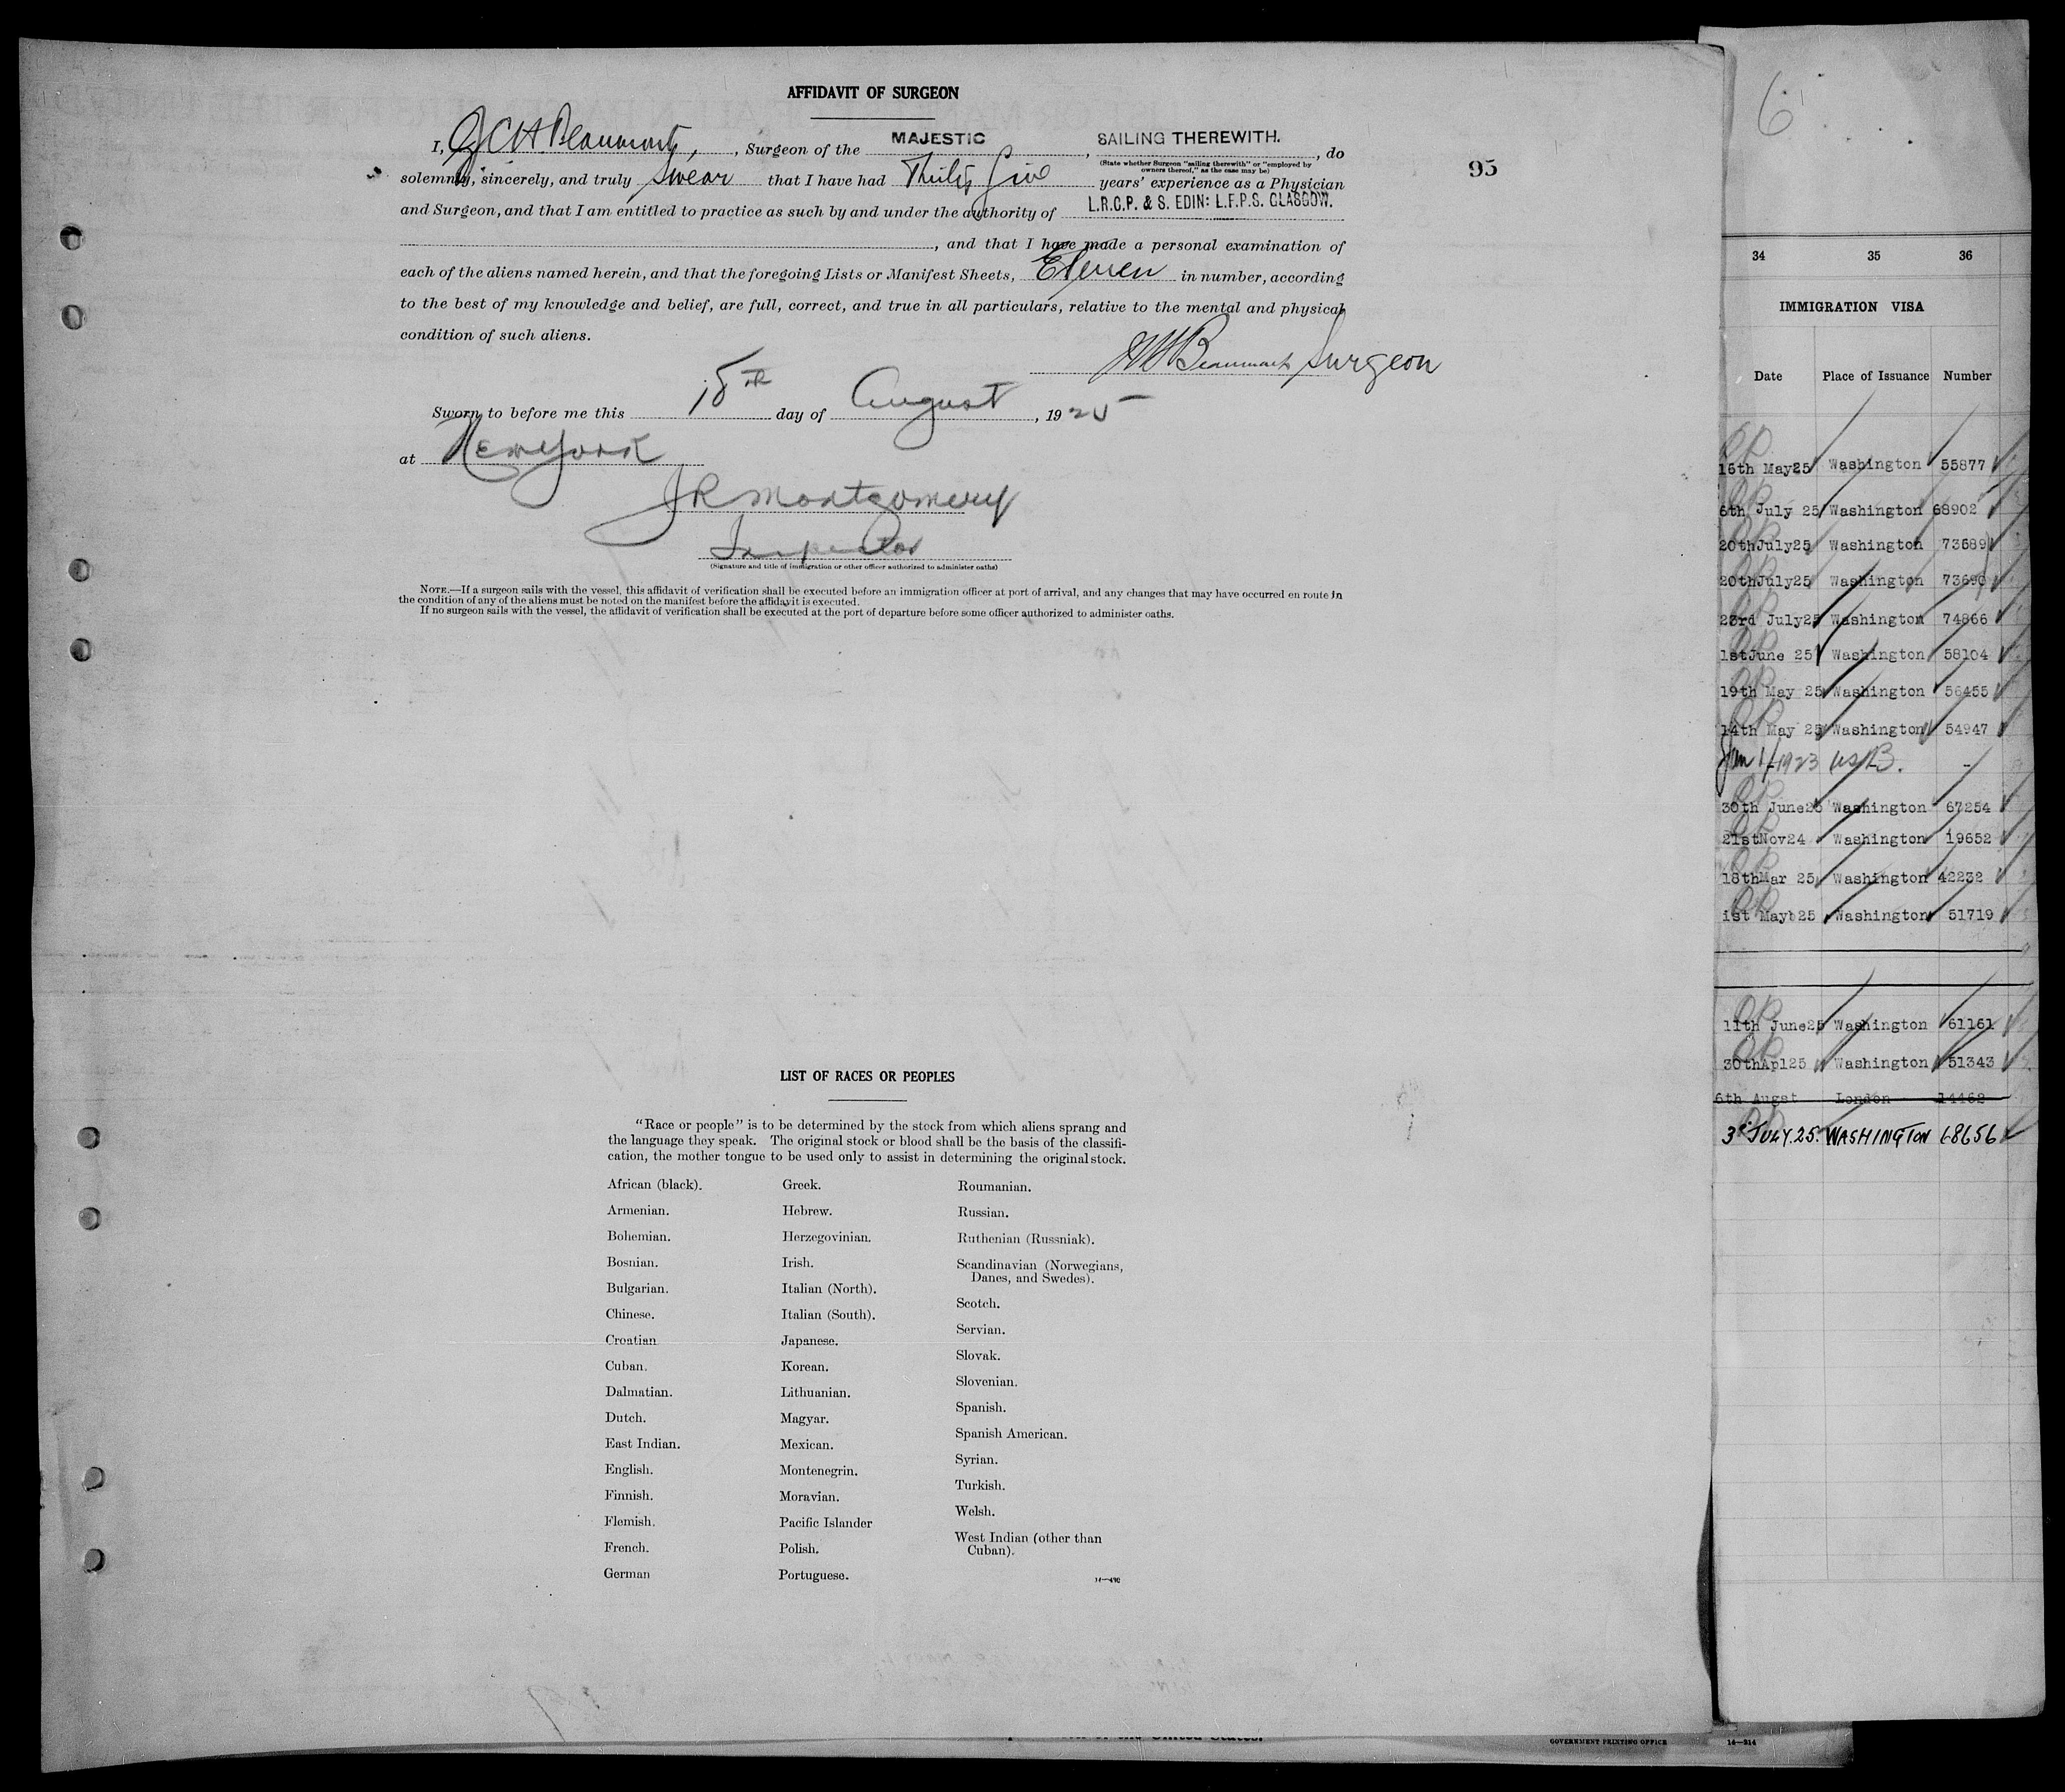 AFFIDAVIT OF SURGEON
I, J C H Beaumont, , Surgeon of the MAJESTIC , SAILING THEREWITH. , do
(State whether Surgeon "sailing therewith" or "employed by
owners thereof," as the case may be)
solemnly, sincerely, and truly swear that I have had Thirty five years' experience as a Physician
and Surgeon, and that I am entitled to practice as such by and under the authority of L.R.C.P. & S. EDIN: L.F.P.S. GLASGOW.
, and that I have made a personal examination of
each of the aliens named herein, and that the foregoing Lists or Manifest Sheets, Eleven in number, according
to the best of my knowledge and belief, are full, correct, and true in all particulars, relative to the mental and physical
condition of such aliens.
Beaumont Surgeon
Sworn to before me this 18th day of August , 1925
at New York
J R Montgomery
Inspector
(Signature and title of immigration or other officer authorized to administer oaths)
NOTE.—If a surgeon sails with the vessel, this affidavit of verification shall be executed before an immigration officer at port of arrival, and any changes that may have occurred en route in
the condition of any of the aliens must be noted on the manifest before the affidavit is executed.
If no surgeon sails with the vessel, the affidavit of verification shall be executed at the port of departure before some officer authorized to administer oaths.
95
LIST OF RACES OR PEOPLES
"Race or people" is to be determined by the stock from which aliens sprang and
the language they speak. The original stock or blood shall be the basis of the classifi-
cation, the mother tongue to be used only to assist in determining the original stock.
African (black).
Armenian.
Bohemian.
Bosnian.
Bulgarian.
Chinese.
Croatian
Cuban.
Dalmatian.
Dutch.
East Indian.
English.
Finnish.
Flemish.
French.
German
Greek.
Hebrew.
Herzegovinian.
Irish.
Italian (North).
Italian (South).
Japanese.
Korean.
Lithuanian.
Magyar.
Mexican.
Montenegrin.
Moravian.
Pacific Islander
Polish.
Portuguese.
Roumanian.
Russian.
Ruthenian (Russniak).
Scandinavian (Norwegians,
Danes, and Swedes).
Scotch.
Servian.
Slovak.
Slovenian.
Spanish.
Spanish American.
Syrian.
Turkish.
Welsh.
West Indian (other than
Cuban).
14—490
6
34 35 36
IMMIGRATION VISA
Date Place of Issuance Number
15th May25 Washington 55877
6th July 25 Washington 68902
20thJuly25 Washington 73689
20thJuly25 Washington 73690
23rd July25 Washington 74866
1stJune 25 Washington 58104
19th May 25 Washington 56455
14th May 25 Washington 54947
Jan 1/1923
30th June25 Washington 67254
21stNov24 Washington 19652
18thMar 25 Washington 42232
1st May 25 Washington 51719
11th June25 Washington 61161
30thApl25 Washington 51343
6th Augst London 14462
3rd JULY.25. WASHINGTON 68656
of the United States.
GOVERNMENT PRINTING OFFICE
14—314